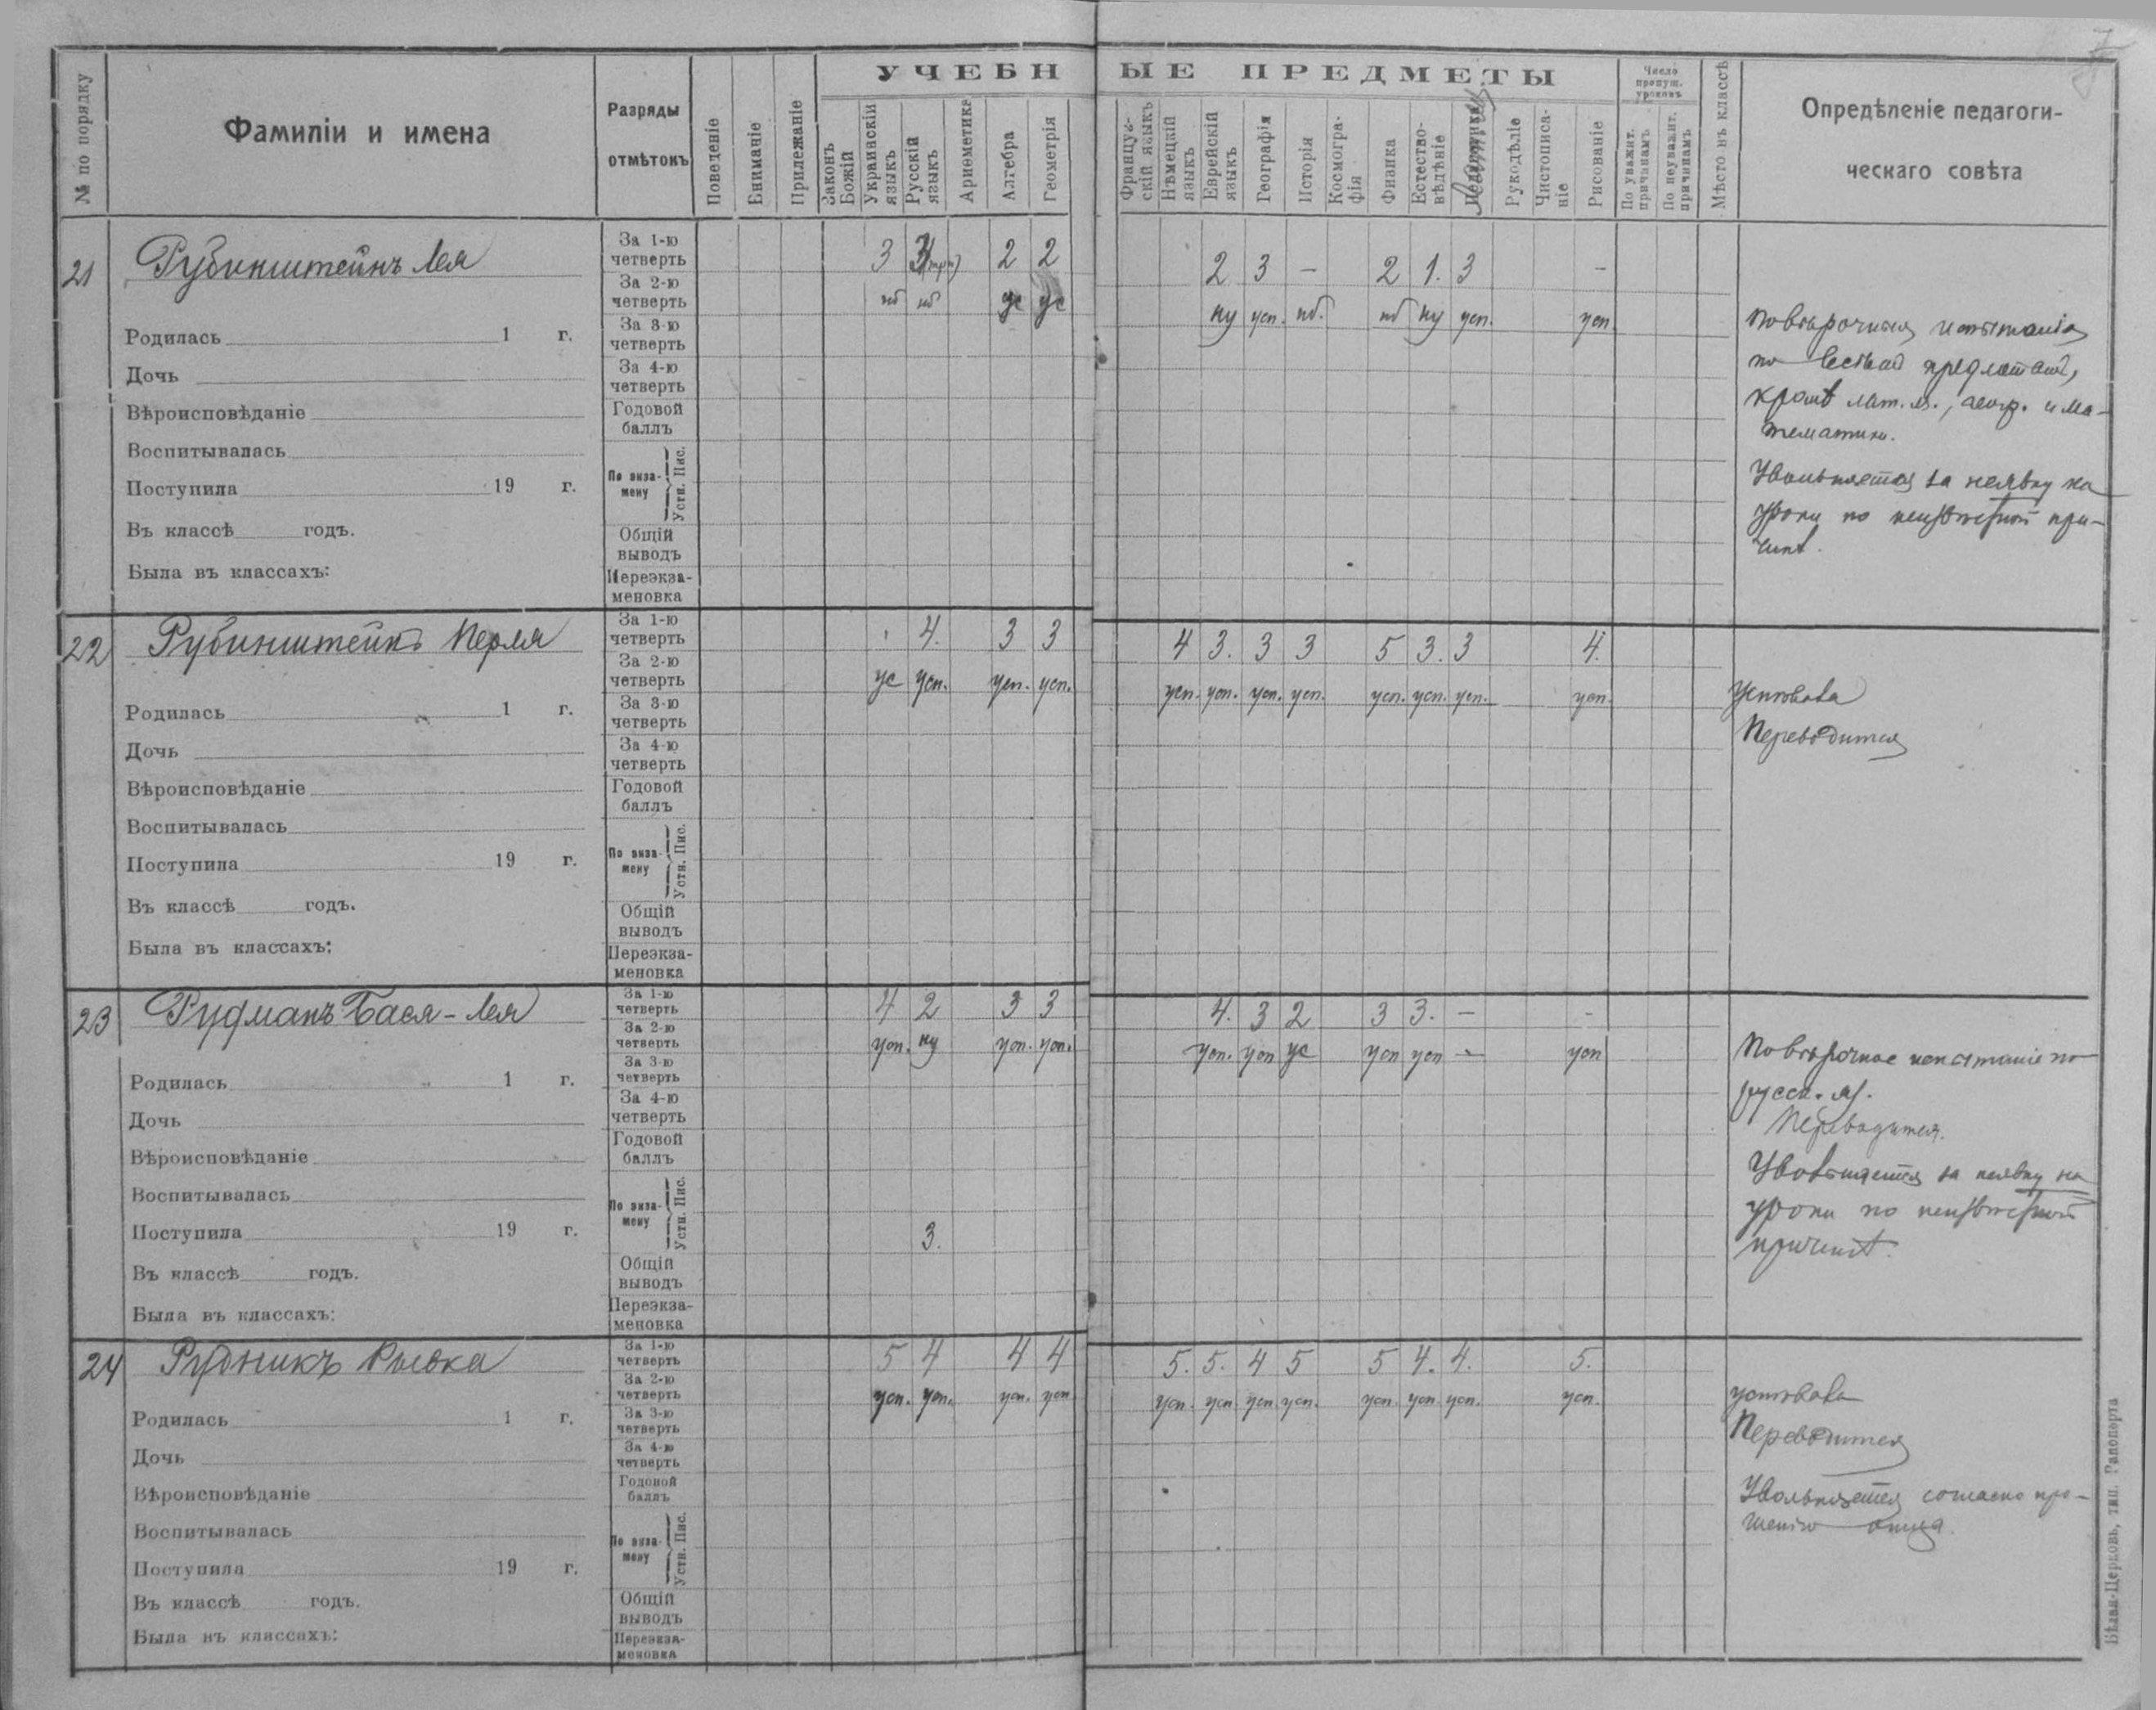 УЧЕБНЫЕ ПРЕДМЕТЫ
№ по порядку
Фамиліи и имена
Разряды отмѣтокъ
Поведеніе
Вниманіе
Прилежаніе
Законъ Божій
Украинскій языкъ
Русскій языкъ
Ариѳметика
Алгебра
Геометрія
Француз-скій языкъ
Нѣмецкій языкъ
Еврейскій языкъ
Географія
Исторія
Космогра-фія
Физика
Естество-вѣдѣніе
Рукодѣліе
Чистописа-ніе
Рисованіе
Число пропущ. уроковъ
По уважит. причинамъ
По неуважит. причинамъ
Мѣсто въ классѣ
Опредѣленіе педагоги-
ческаго совѣта
21 Рубинштейнъ Лея
За 1-ю четверть 3 3 2 2 2 3 – 2 1. 3 –
За 2-ю четверть нб нб ус ус ну усп. нб. нб ну усп. усп
За 3-ю четверть
За 4-ю четверть
Годовой баллъ
По экза-мену Устн. Пис.
Общій выводъ
Переэкза-меновка
Родилась 1 г.
Дочь
Вѣроисповѣданіе
Воспитывалась
Поступила 19 г.
Въ классѣ годъ.
Была въ классахъ:
Повѣрочныя испытанія
по всѣмъ предметамъ,
кромѣ лат. яз., геогр. и ма-
тематики.
Увольняется за неявку на
уроки по неизвѣстной при-
чинѣ.
22 Рубинштейнъ Перля
За 1-ю четверть 4. 3 3 4 3. 3 3 5 3. 3 4.
За 2-ю четверть ус усп. усп. усп. усп. усп. усп. усп. усп. усп. усп. усп.
За 3-ю четверть
За 4-ю четверть
Годовой баллъ
По экза-мену Устн. Пис.
Общій выводъ
Переэкза-меновка
Родилась 1 г.
Дочь
Вѣроисповѣданіе
Воспитывалась
Поступила 19 г.
Въ классѣ годъ.
Была въ классахъ:
Успѣвала
Переводится
23 Рудманъ Бася-Лея
За 1-ю четверть 4 2 3 3 4. 3 2 3 3. – -
За 2-ю четверть усп. ну усп. усп. усп. усп ус усп усп – усп
За 3-ю четверть
За 4-ю четверть
Годовой баллъ
По экза-мену Устн. Пис. 3.
Общій выводъ
Переэкза-меновка
Родилась 1 г.
Дочь
Вѣроисповѣданіе
Воспитывалась
Поступила 19 г.
Въ классѣ годъ.
Была въ классахъ:
Повѣрочное испытаніе по
русск. яз.
Переводится.
Увольняется за неявку на
уроки по неизвѣстной
причинѣ.
24 Рудникъ Рывка
За 1-ю четверть 5 4 4 4 5. 5. 4 5 5 4. 4. 5.
За 2-ю четверть усп. усп. усп. усп усп. усп усп усп. усп. усп усп. усп.
За 3-ю четверть
За 4-ю четверть
Годовой баллъ
По экза-мену Устн. Пис.
Общій выводъ
Переэкза-меновка
Родилась 1 г.
Дочь
Вѣроисповѣданіе
Воспитывалась
Поступила 19 г.
Въ классѣ годъ.
Была въ классахъ:
успѣвала
Переводится
Увольняется согласно про-
шенію отца.
Бѣлая-Церковь, тип. Рапопорта